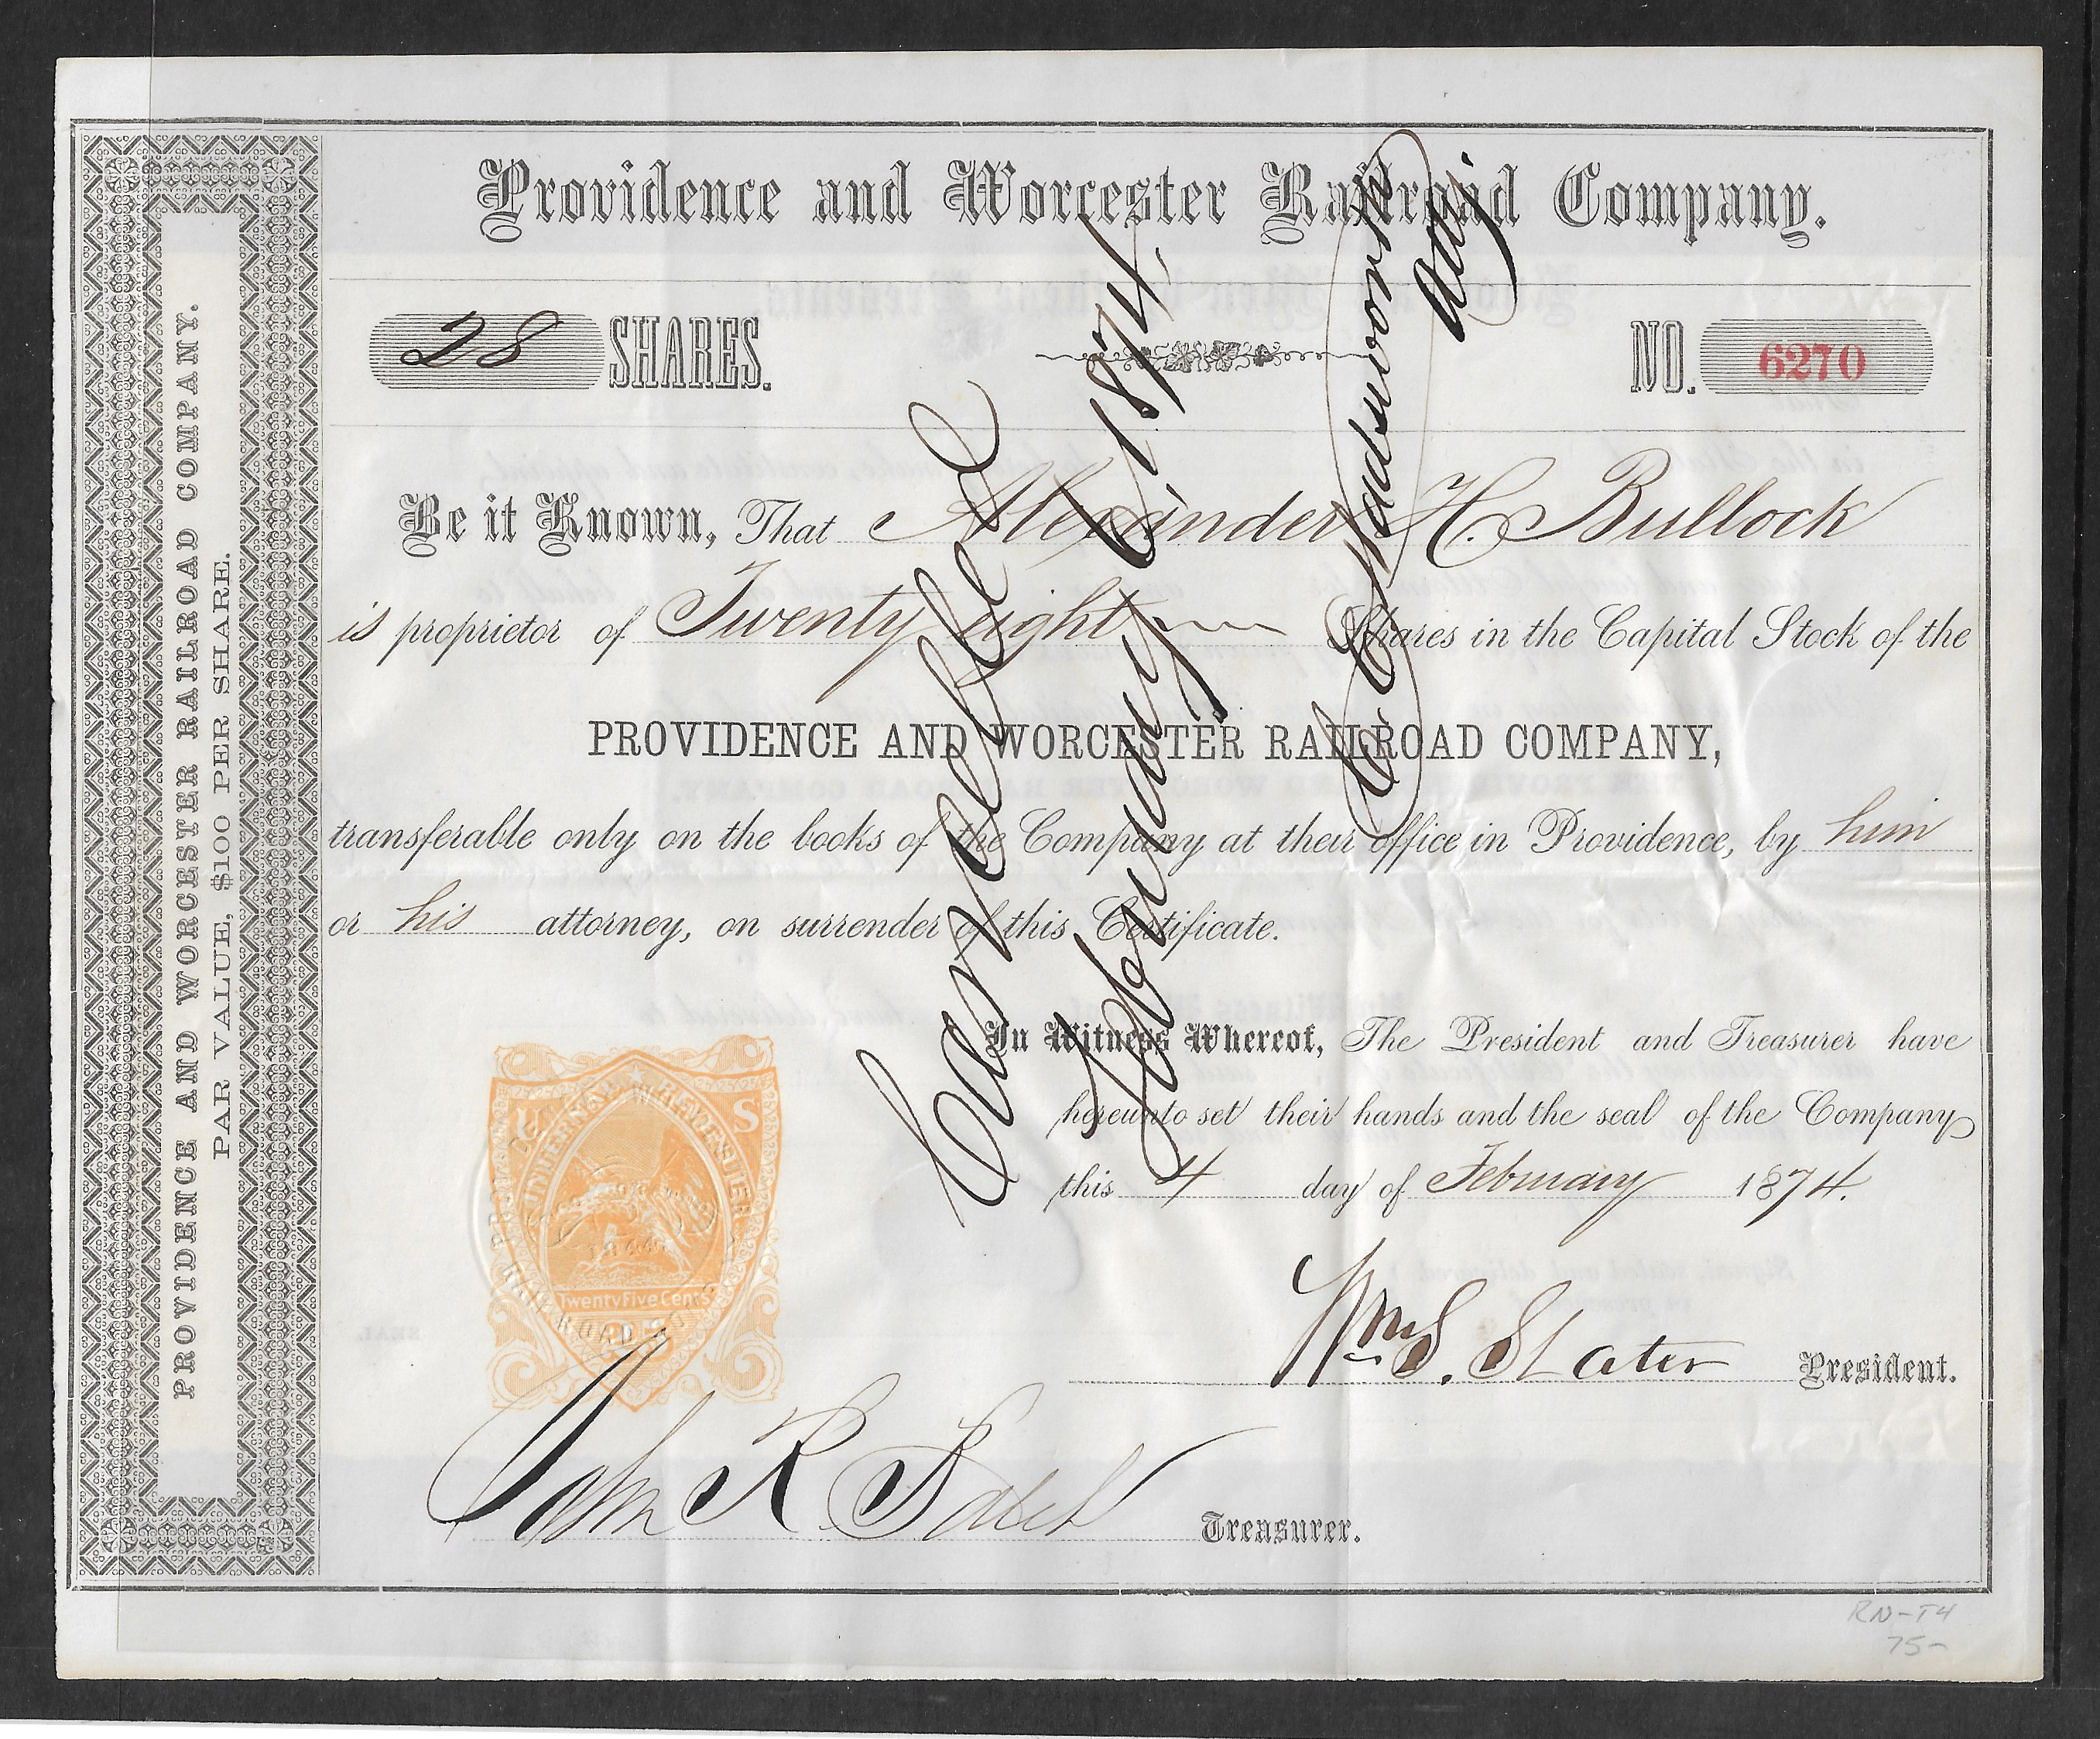 Providence and Worcester Railroad Company.
28 SHARES.
NO. 6270
Be it Known, That Alexander H. Bullock
is proprietor of Twenty eight Shares in the Capital Stock of the
PROVIDENCE AND WORCESTER RAILROAD COMPANY,
transferable only on the books of the Company at their office in Providence, by him
or his attorney, on surrender of this Certificate.
In Witness Whereof, The President and Treasurer have
hereunto set their hands and the seal of the Company
this 4 day of February 1874.
Wm S. Slater President.
John R. Balch Treasurer.
PROVIDENCE AND WORCESTER RAILROAD COMPANY.
PAR VALUE, $100 PER SHARE.
Cancelled
February 6, 1874.
U S
INTER. REVENUE
Twenty Five Cents
RN-T4
75-